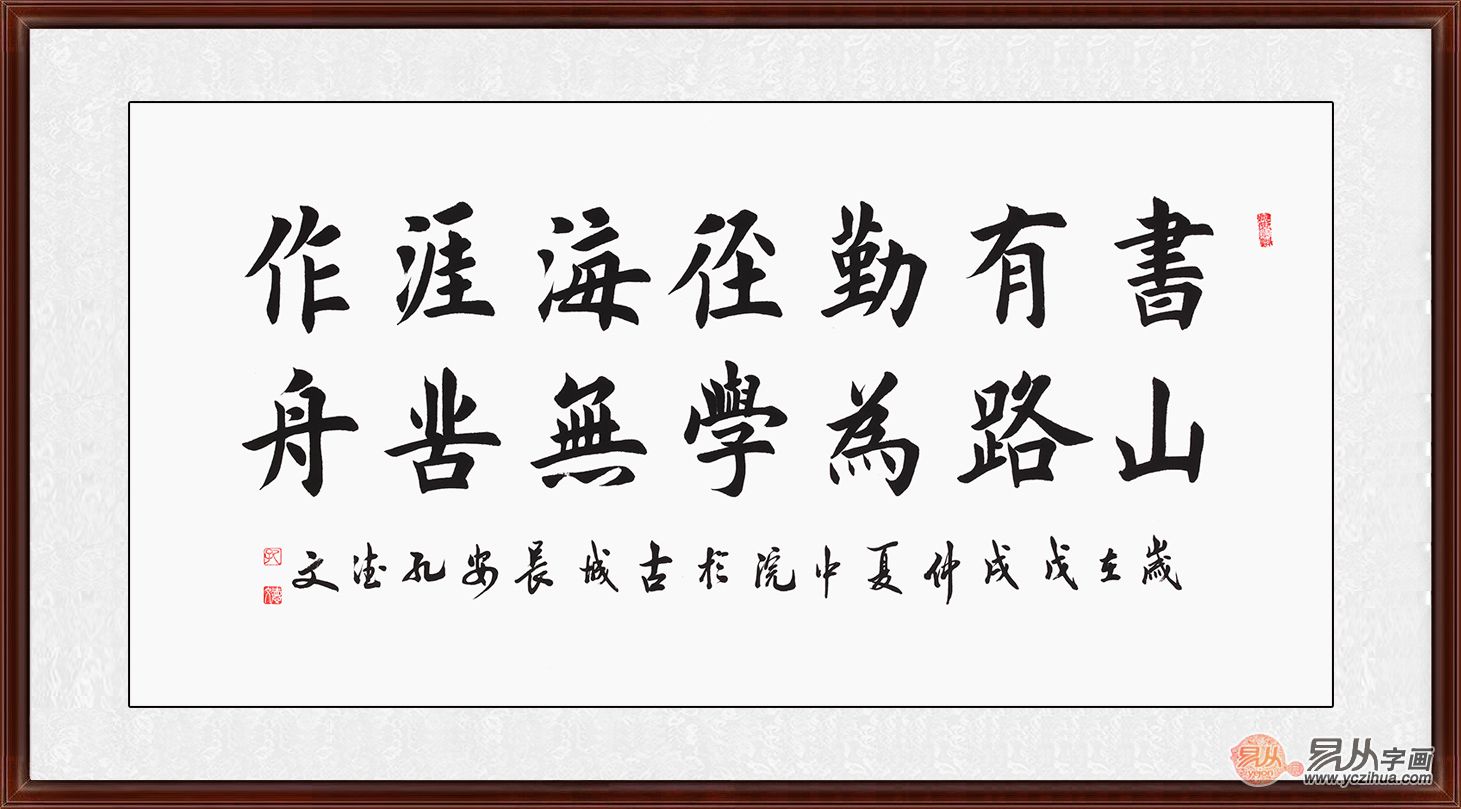 書山
有路
勤為
径學
海無
涯苦
作舟
歲在戊戌仲夏中浣於古城長安孔德文
易从
易从字画
www.yczihua.com